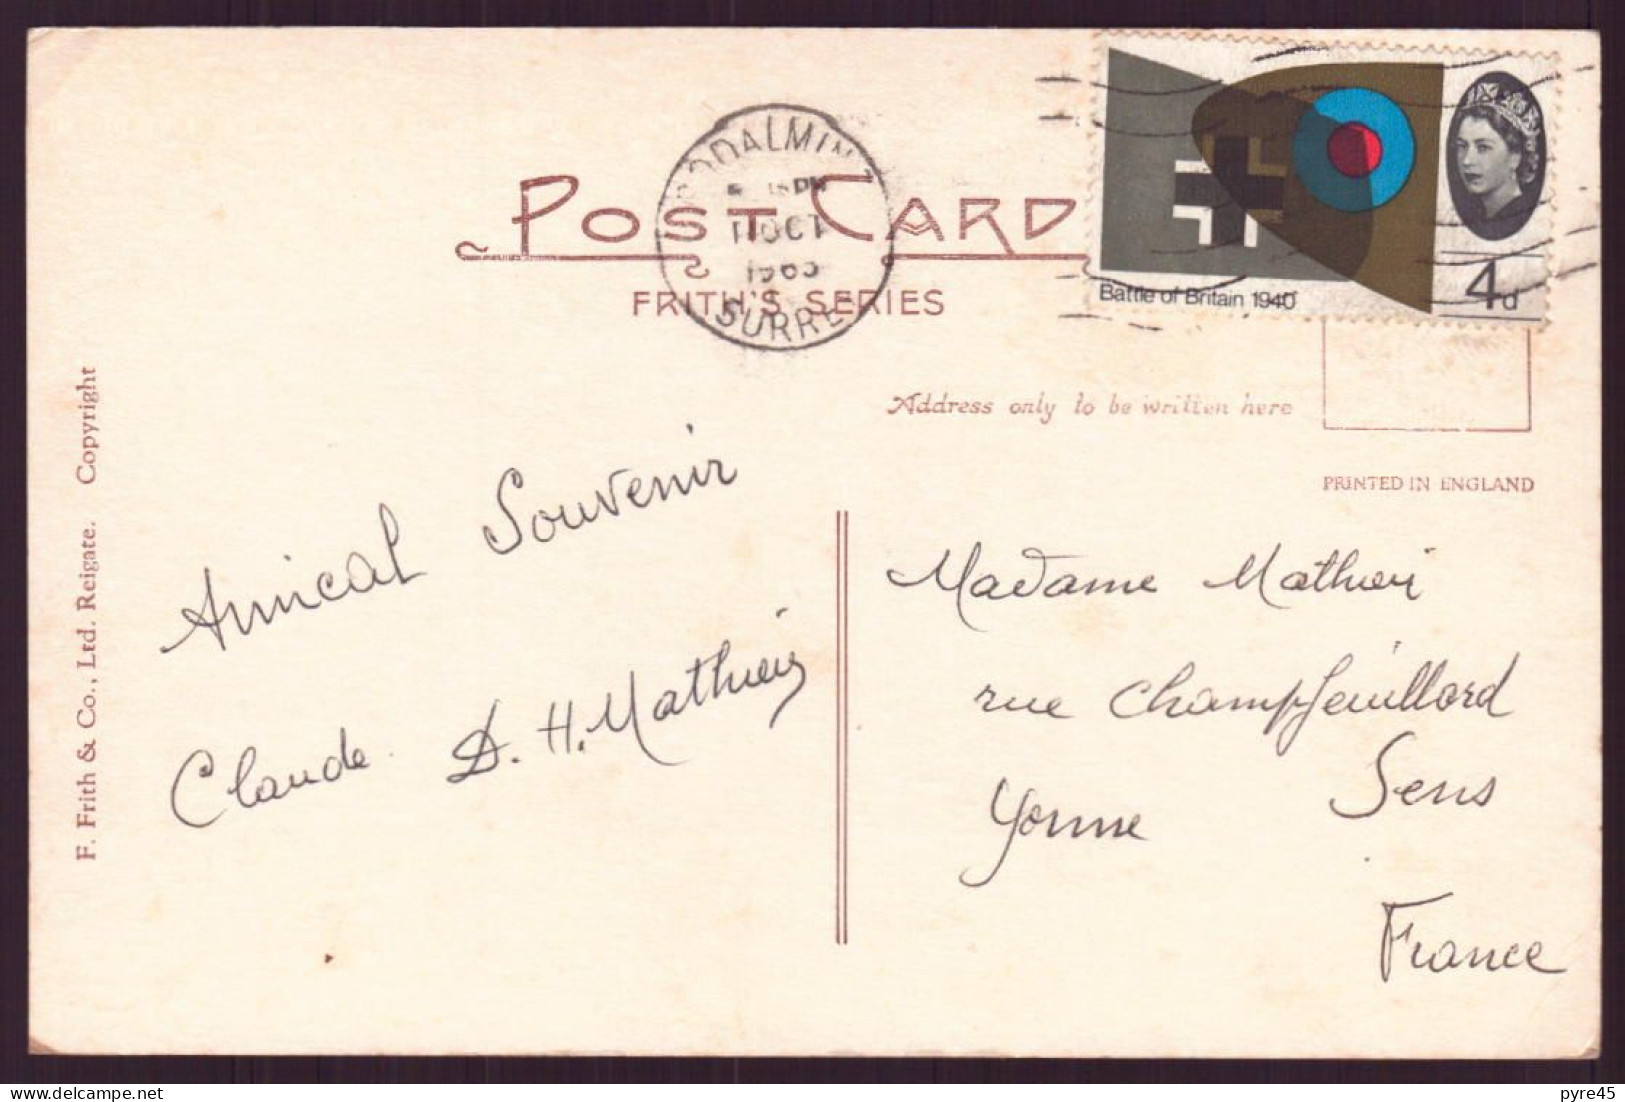 GODALMING
PM
11 OCT
1965
SURREY
POST CARD
FRITH'S SERIES
Battle of Britain 1940
4d
Address only to be written here
PRINTED IN ENGLAND
F. Frith & Co., Ltd. Reigate. Copyright
Amical Souvenir
Claude D.H. Mathieu
Madame Mathieu
rue Champfeuillard
Sens
Yonne
France
pyre45